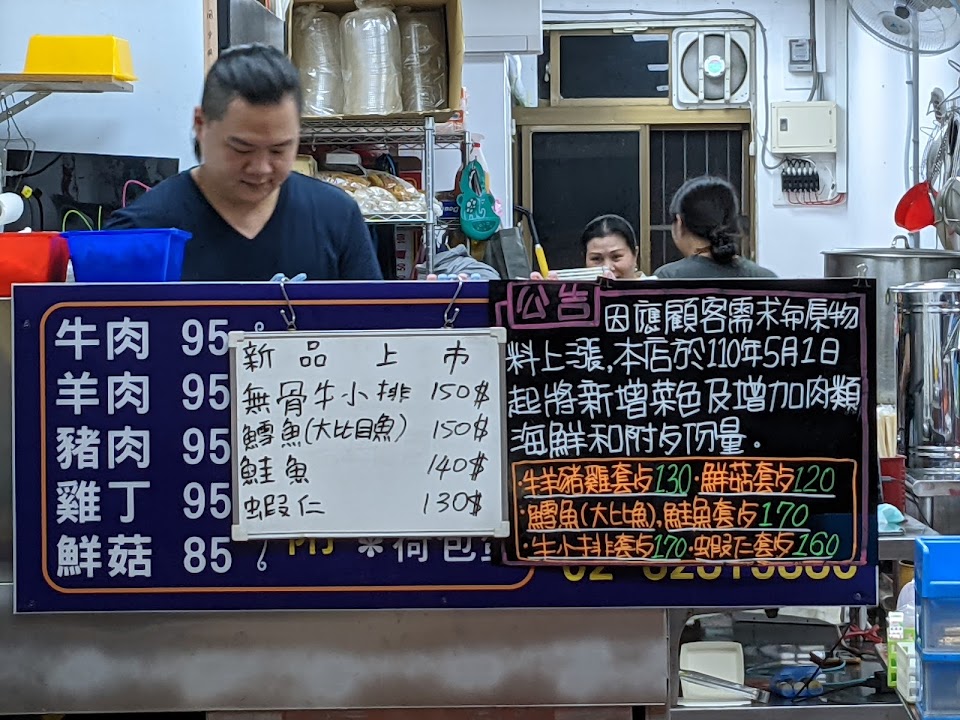 牛肉 95
羊肉 95
豬肉 95
雞丁 95
鮮菇 85
附 *荷包
新品上市
無骨牛小排 150$
鱈魚(大比目魚) 150$
鮭魚 140$
蝦仁 130$
公告
因應顧客需求布原物
料上漲,本店於110年5月1日
起將新增菜色及增加肉類
海鮮和附歺份量。
·牛羊豬雞套歺130·鮮菇套歺120
·鱈魚(大比魚),鮭魚套歺170
·牛小排套歺170·蝦仁套歺160